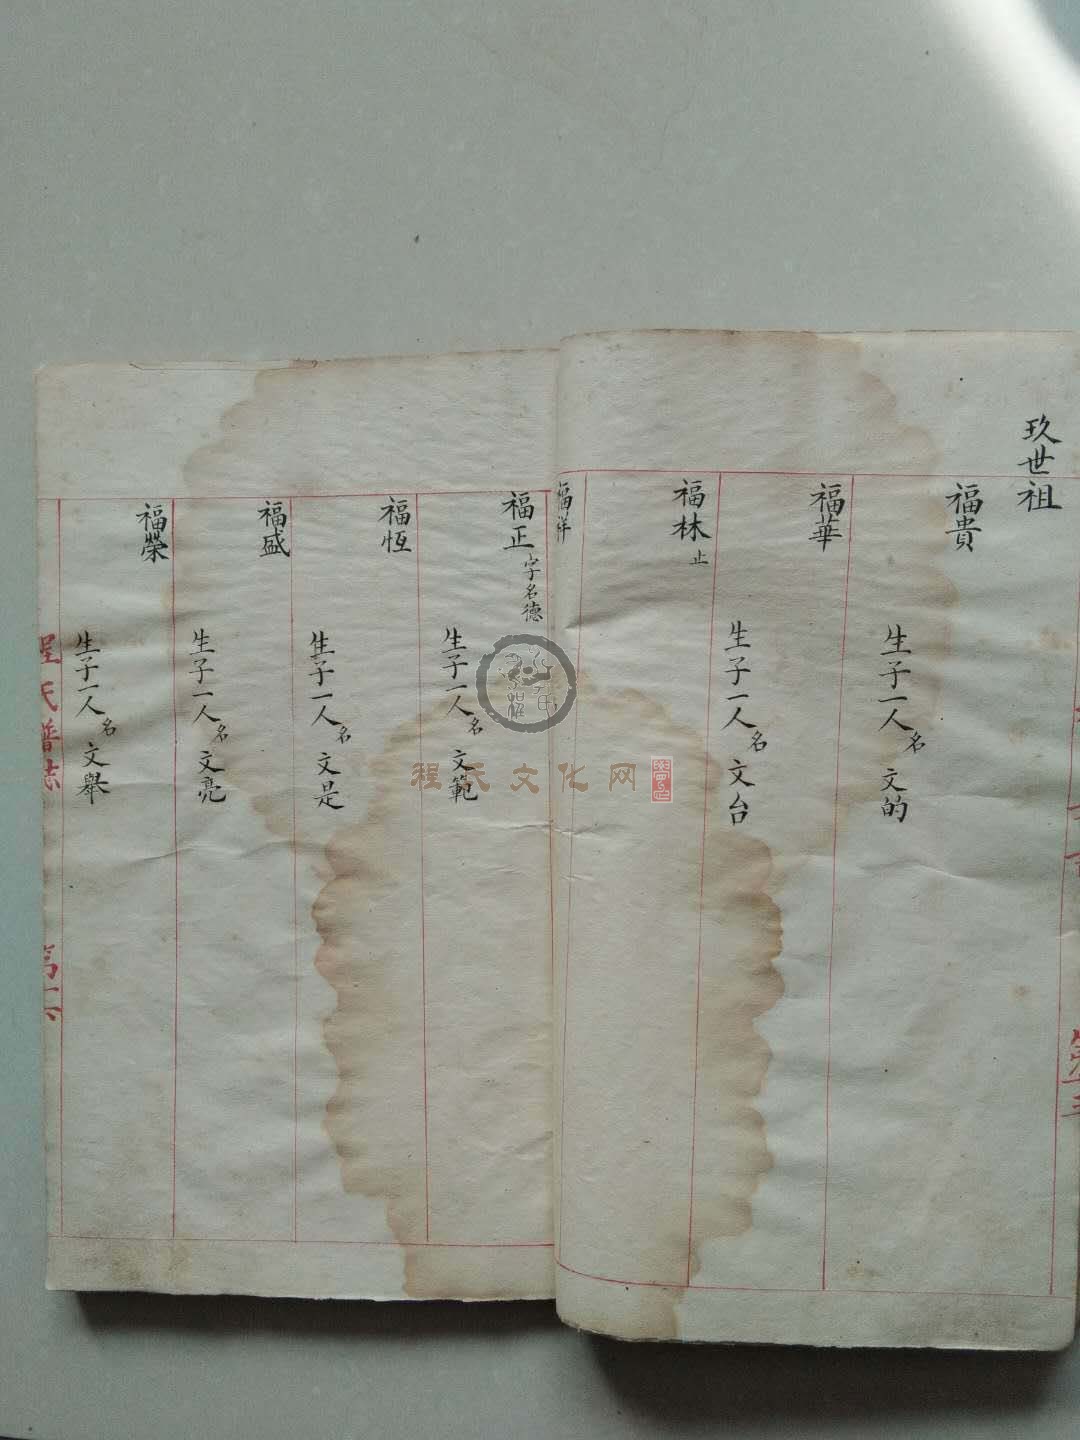 玖世祖
福貴
生子一人名文的
福華
生子一人名文台
福林止
福祥
福正字名德
生子一人名文範
福恆
生子一人名文是
福盛
生子一人名文亮
福榮
生子一人名文舉
程氏譜志
程氏文化网